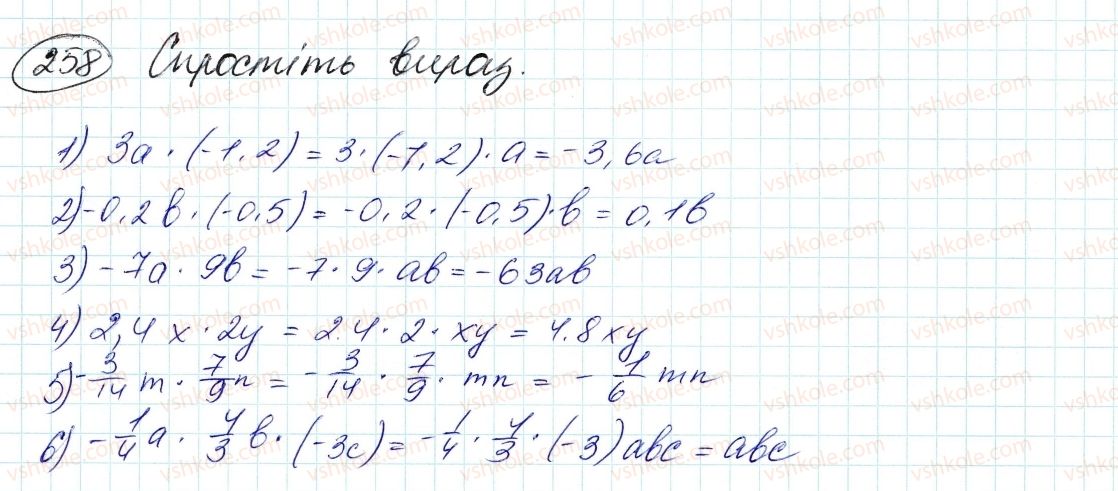 258 Спростіть вираз.
1) 3a · (-1,2) = 3 · (-1,2) · a = -3,6a
2) -0,2b · (-0,5) = -0,2 · (-0,5) · b = 0,1b
3) -7a · 9b = -7 · 9 · ab = -63ab
4) 2,4x · 2y = 2.4 · 2 · xy = 4.8xy
5) -3/14 m · 7/9 n = -3/14 · 7/9 · mn = -1/6 mn
6) -1/4 a · 4/3 b · (-3c) = -1/4 · 4/3 · (-3)abc = abc